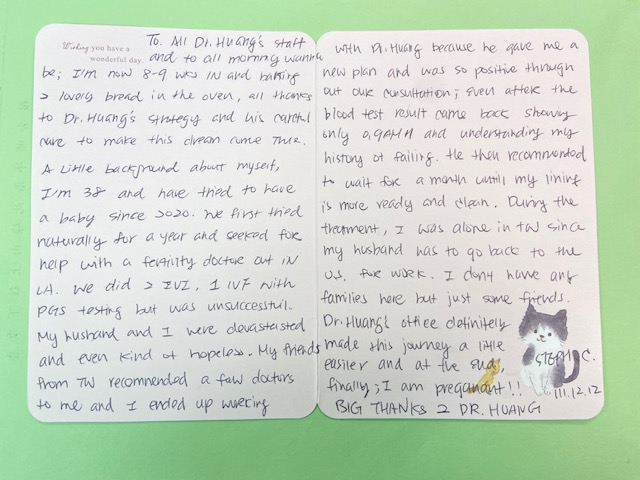 Wishing you have a
wonderful day.
To. All Dr. Huang's staff
and to all mommy wanna
be; I'm now 8-9 wks IN and baking
2 lovery bread in the oven, all thanks
to Dr. Huang's strategy and his careful
care to make this dream come true.
A little background about myself,
I'm 38 and have tried to have
a baby since 2020. We first tried
naturally for a year and seeked for
help with a fertility doctor out in
LA. We did 2 IUI, 1 IVF with
PGS testing but was unsuccessful.
My husband and I were devastasted
and even kind of hopeless. My friends
from TW recomended a few doctors
to me and I ended up working
with Dr. Huang because he gave me a
new plan and was so positive through
out our consultation; even after the
blood test result came back showing
only 0.9AMH and understanding my
history of failing. He then recommended
to wait for a month until my lining
is more ready and clean. During the
treatment, I was alone in TW since
my husband has to go back to the
U.S. for work. I don't have any
families here but just some friends.
Dr. Huang's office definitely
made this journey a little
easier and at the end,
finally; I am preganant!!
BIG THANKS 2 DR. HUANG
STEPH C.
111.12.12